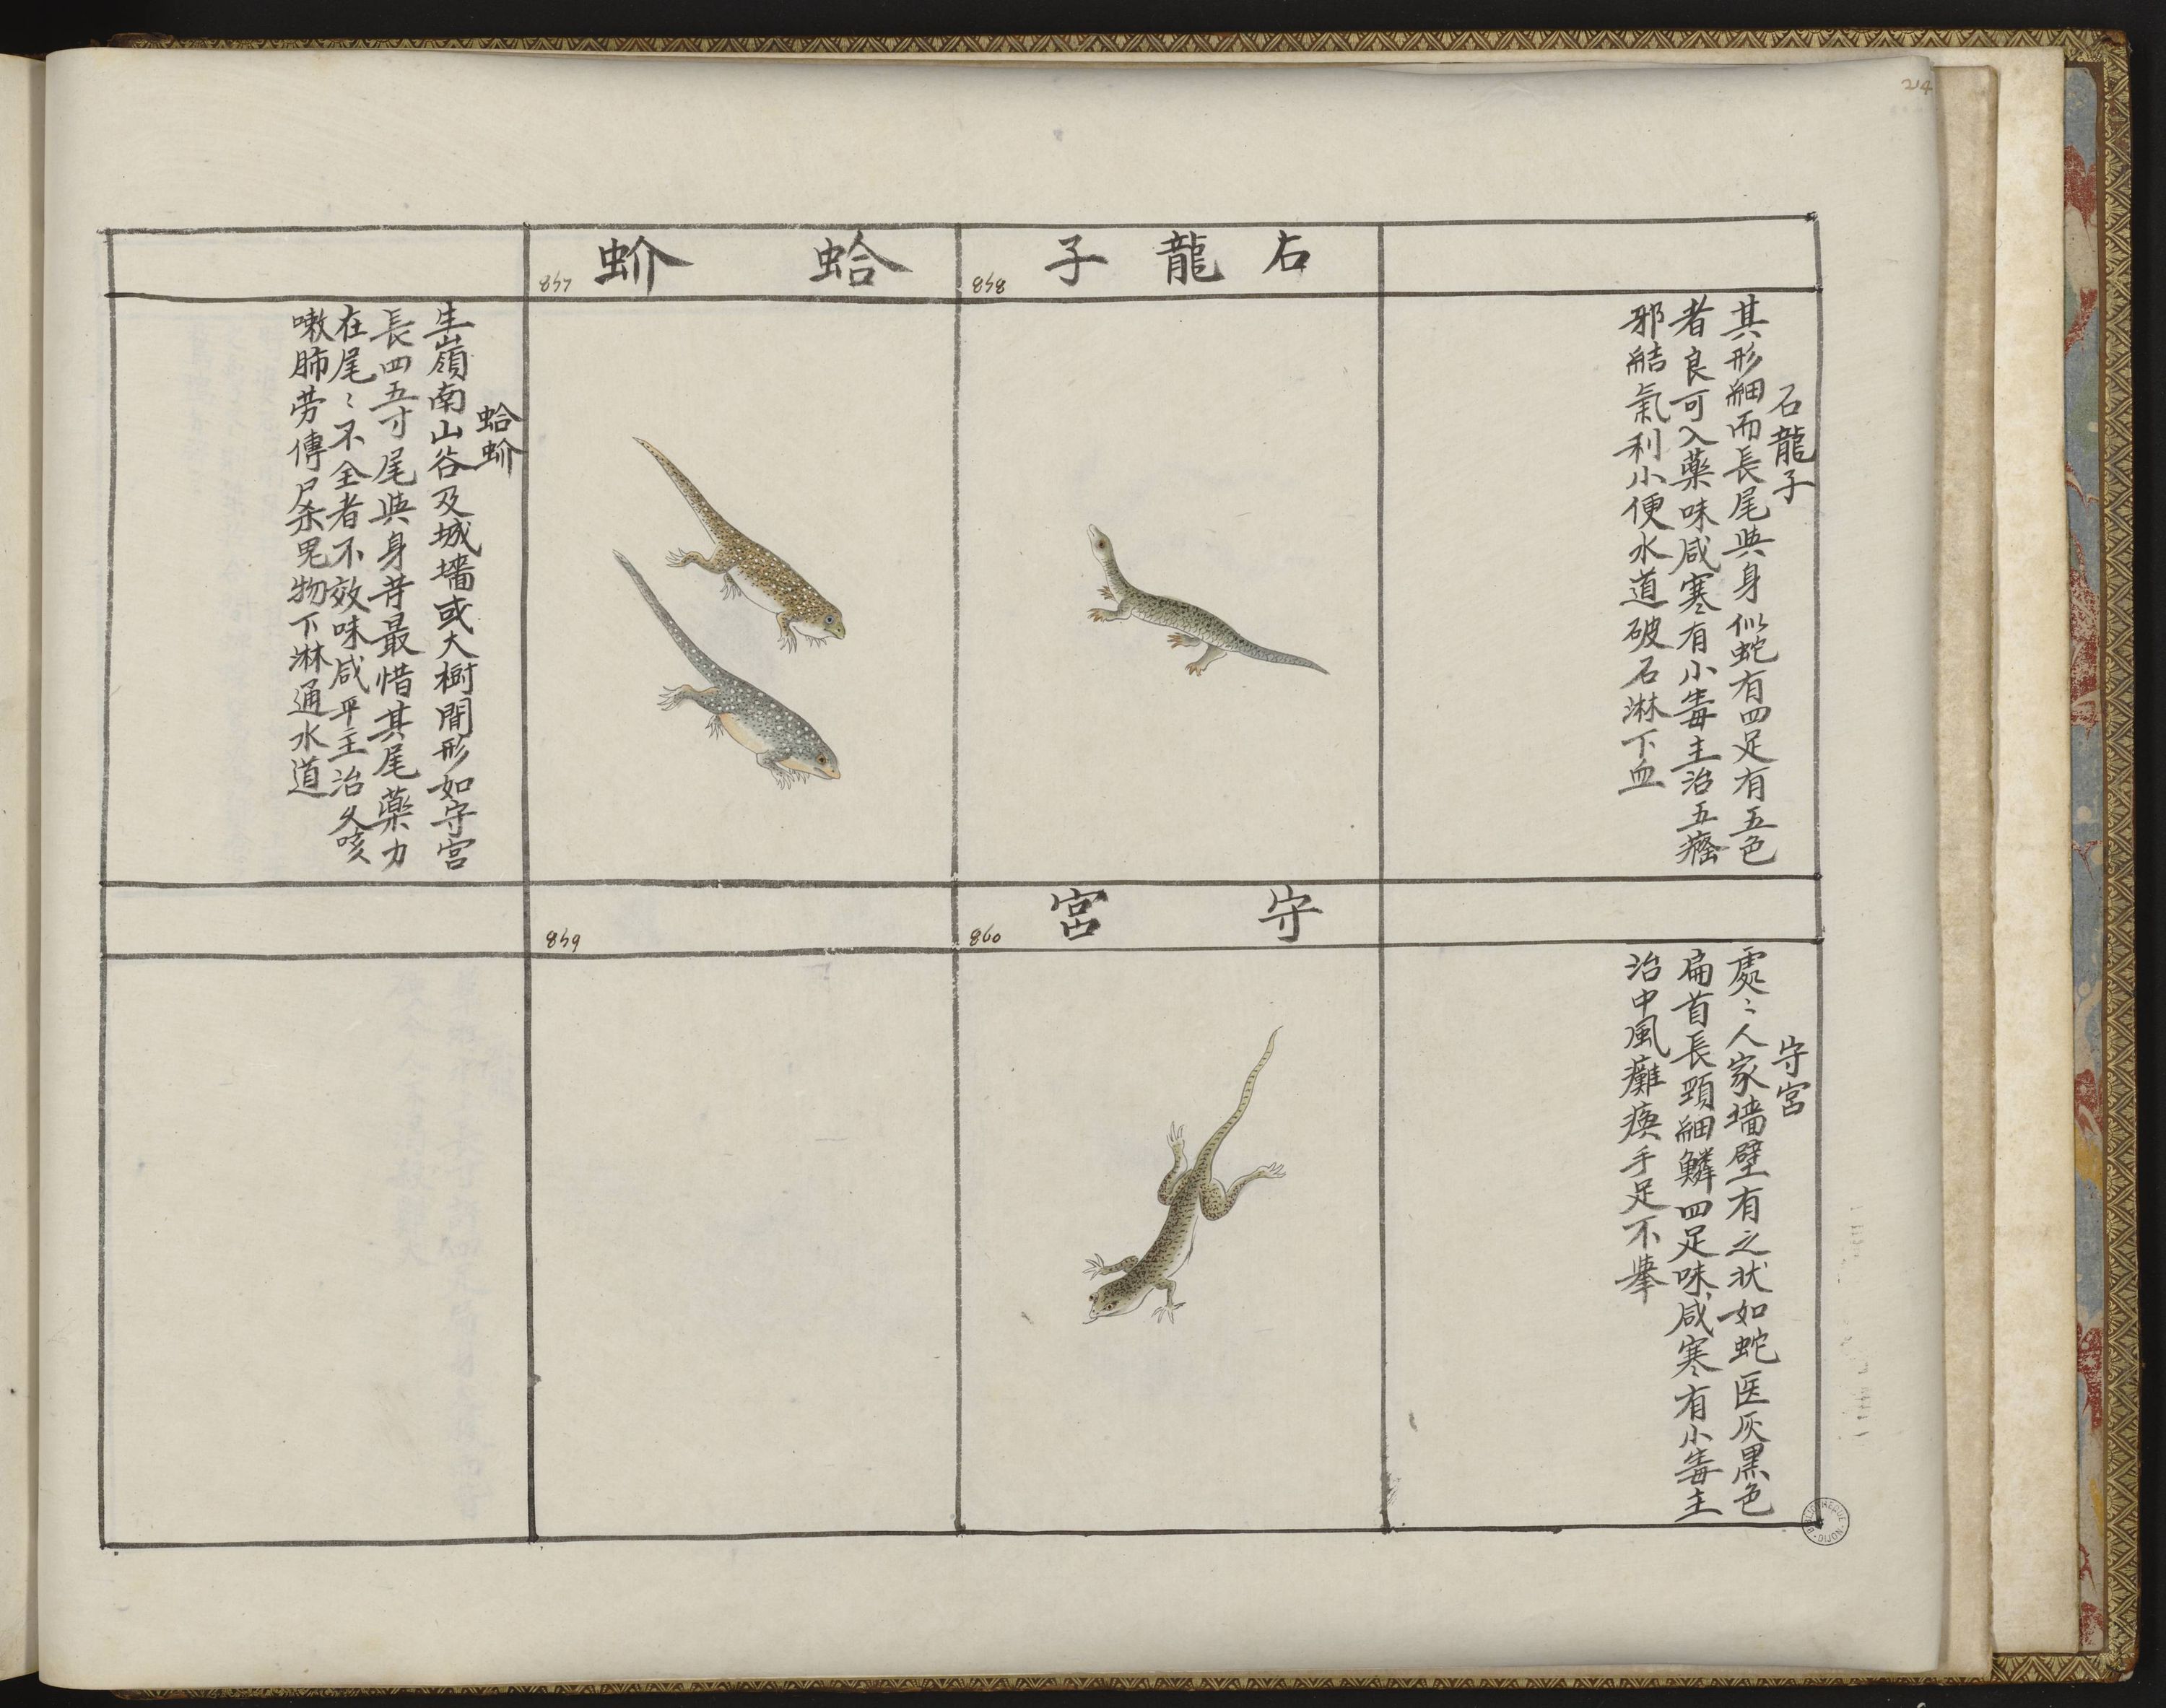 214
石龍子
其形細而長尾與身似蛇有四足有五色
者良可入藥味咸寒有小毒主治五癃
邪結氣利小便水道破石淋下血
石龍子
858
蛤蚧
857
蛤蚧
生嶺南山谷及城墻或大樹間形如守宮
長四五寸尾與身昔最惜其尾藥力
在尾〻不全者不效味咸平主治久咳
嗽肺劳傳尸杀鬼物下淋通水道
守宮
處〻人家墻壁有之状如蛇医灰黑色
扁首長頸細鱗四足味咸寒有小毒主
治中風癱痪手足不擧
守宮
860
859